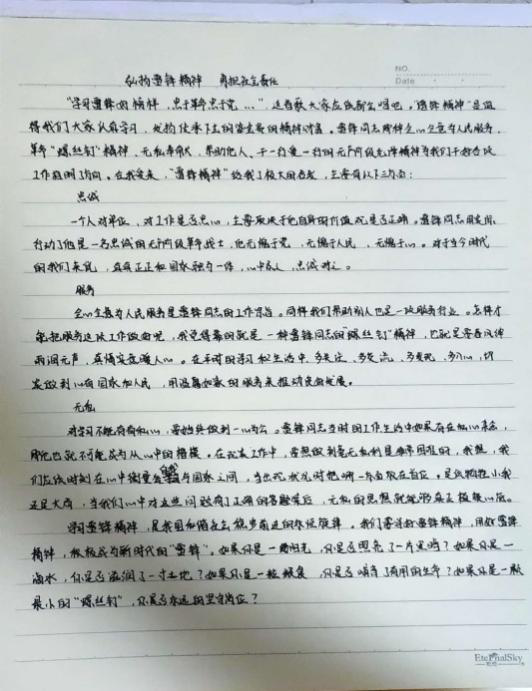 NO.
Date
弘扬雷锋精神 勇担社会责任
"学习雷锋的榜样，忠于革命忠于党…"，这首歌大家应该都会唱吧。"雷锋精神"是值
得我们大家认真学习，发扬传承下去的宝贵的精神财富。雷锋同志那种全心全意为人民服务，
革命"螺丝钉"精神、无私奉献、帮助他人、干一行爱一行的无产阶级先锋精神为我们干好各项
工作指明了方向。在我看来，"雷锋精神"给我了极大的启发，主要有以下三方面：
忠诚
一个人对单位、对工作是否忠心，主要取决于他自身的价值观是否正确。雷锋同志用实际
行动了他是一名忠诚的无产阶级革命战士，他无愧于党、无愧于人民、无愧于心。对于当今时代
的我们来说，真真正正和国家融为一体，心中有人，忠诚对之。
服务
全心全意为人民服务是雷锋同志的工作宗旨。同样我们帮助别人也是一项服务行业。怎样才
能把服务这项工作做好呢，我觉得靠的就是一种雷锋同志的"螺丝钉"精神，也就是春春风化
雨润无声，真情实意暖人心。在平时的学习和生活中，多关注、多交流、多发现、多用心，切
实做到心有国家和人民，用温馨如家的服务来推动发展。
无私
对学习不能有私心，要始终做到一心为公。雷锋同志当时的工作生活中如果存在私心杂念，
那他也就不可能成为人心中的楷模。在现实工作中，要想做到毫无私利是非常困难的，我想，我
们应该时刻在心中衡量自我与国家之间，当出现状况时把哪一方面放在首位。是依牺牲小我
还是大局，当我们心中对这些问题有了正确的答案后，无私的思想就能够真正植根心底。
学习雷锋精神，是我国和谐社会稳步前进的永恒旋律，我们要读好雷锋精神，用好雷锋
精神，积极成为新时代的"雷锋"。如果你是一缕阳光，你是否照亮了一片黑暗？如果你是一
滴水，你是否滋润了一寸土地？如果你是一粒粮食，你是否哺育了有用的生命？如果你是一颗
最小的"螺丝钉"，你是否永远的坚守岗位？
EternalSky